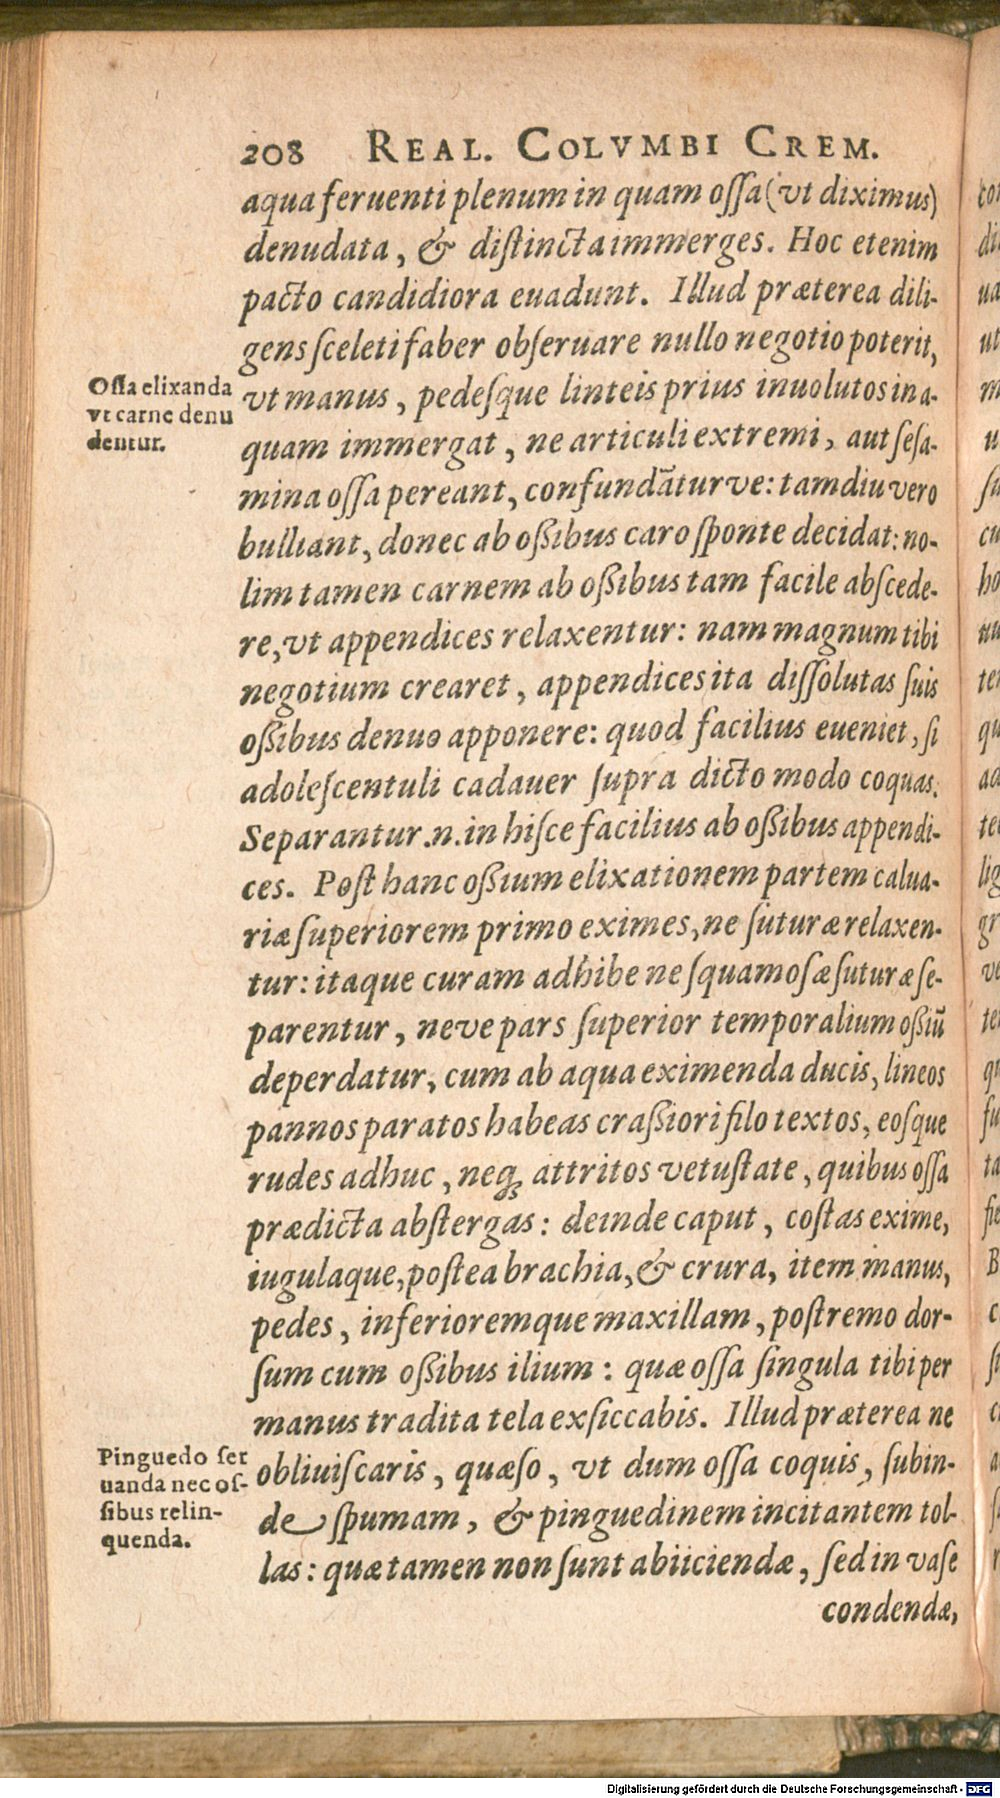 208 REAL. COLVMBI CREM.
aqua feruenti plenum in quam ossa (vt diximus)
denudata, & distincta immerges. Hoc etenim
pacto candidiora euadunt. Illud præterea dili-
gens sceleti faber obseruare nullo negotio poterit,
vt manus, pedesque linteis prius inuolutos in a-
quam immergat, ne articuli extremi, aut sesa-
mina ossa pereant, confundãturve: tamdiu vero
bulliant, donec ab ossibus caro sponte decidat: no-
lim tamen carnem ab ossibus tam facile abscede-
re, vt appendices relaxentur: nam magnum tibi
negotium crearet, appendices ita dissolutas suis
ossibus denuo apponere: quod facilius eueniet, si
adolescentuli cadauer supra dicto modo coquas.
Separantur .n. in hisce facilius ab ossibus appendi-
ces. Post hanc ossium elixationem partem calua-
riæ superiorem primo eximes, ne suturæ relaxen-
tur: itaque curam adhibe ne squamosæ suturæ se-
parentur, neve pars superior temporalium ossiũ
deperdatur, cum ab aqua eximenda ducis, lineos
pannos paratos habeas crassiori filo textos, eosque
rudes adhuc, neq; attritos vetustate, quibus ossa
prædicta abstergas: deinde caput, costas exime,
iugulaque, postea brachia, & crura, item manus,
pedes, inferioremque maxillam, postremo dor-
sum cum ossibus ilium: quæ ossa singula tibi per
manus tradita tela exsiccabis. Illud præterea ne
obliuiscaris, quæso, vt dum ossa coquis, subin-
de spumam, & pinguedinem incitantem tol-
las: quæ tamen non sunt abiiciendæ, sed in vase
condendæ,
Ossa elixanda
vt carne denu
dentur.
Pinguedo ser
uanda nec os-
sibus relin-
quenda.
Digitalisierung gefördert durch die Deutsche Forschungsgemeinschaft - DFG